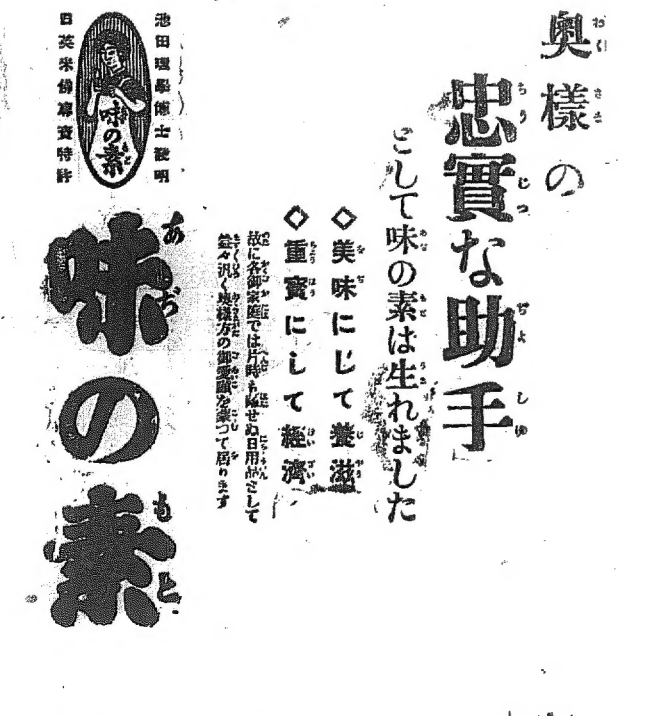 奥様の
忠實な助手
として味の素は生れました
◇美味にして養滋
◇重寳にして経済
故に各御家庭では片時も離せぬ日用品として
益々汎く奥様方の御愛顧を蒙つて居ります
池田理學博士發明
味の素
日英米佛専賣特許
味の素